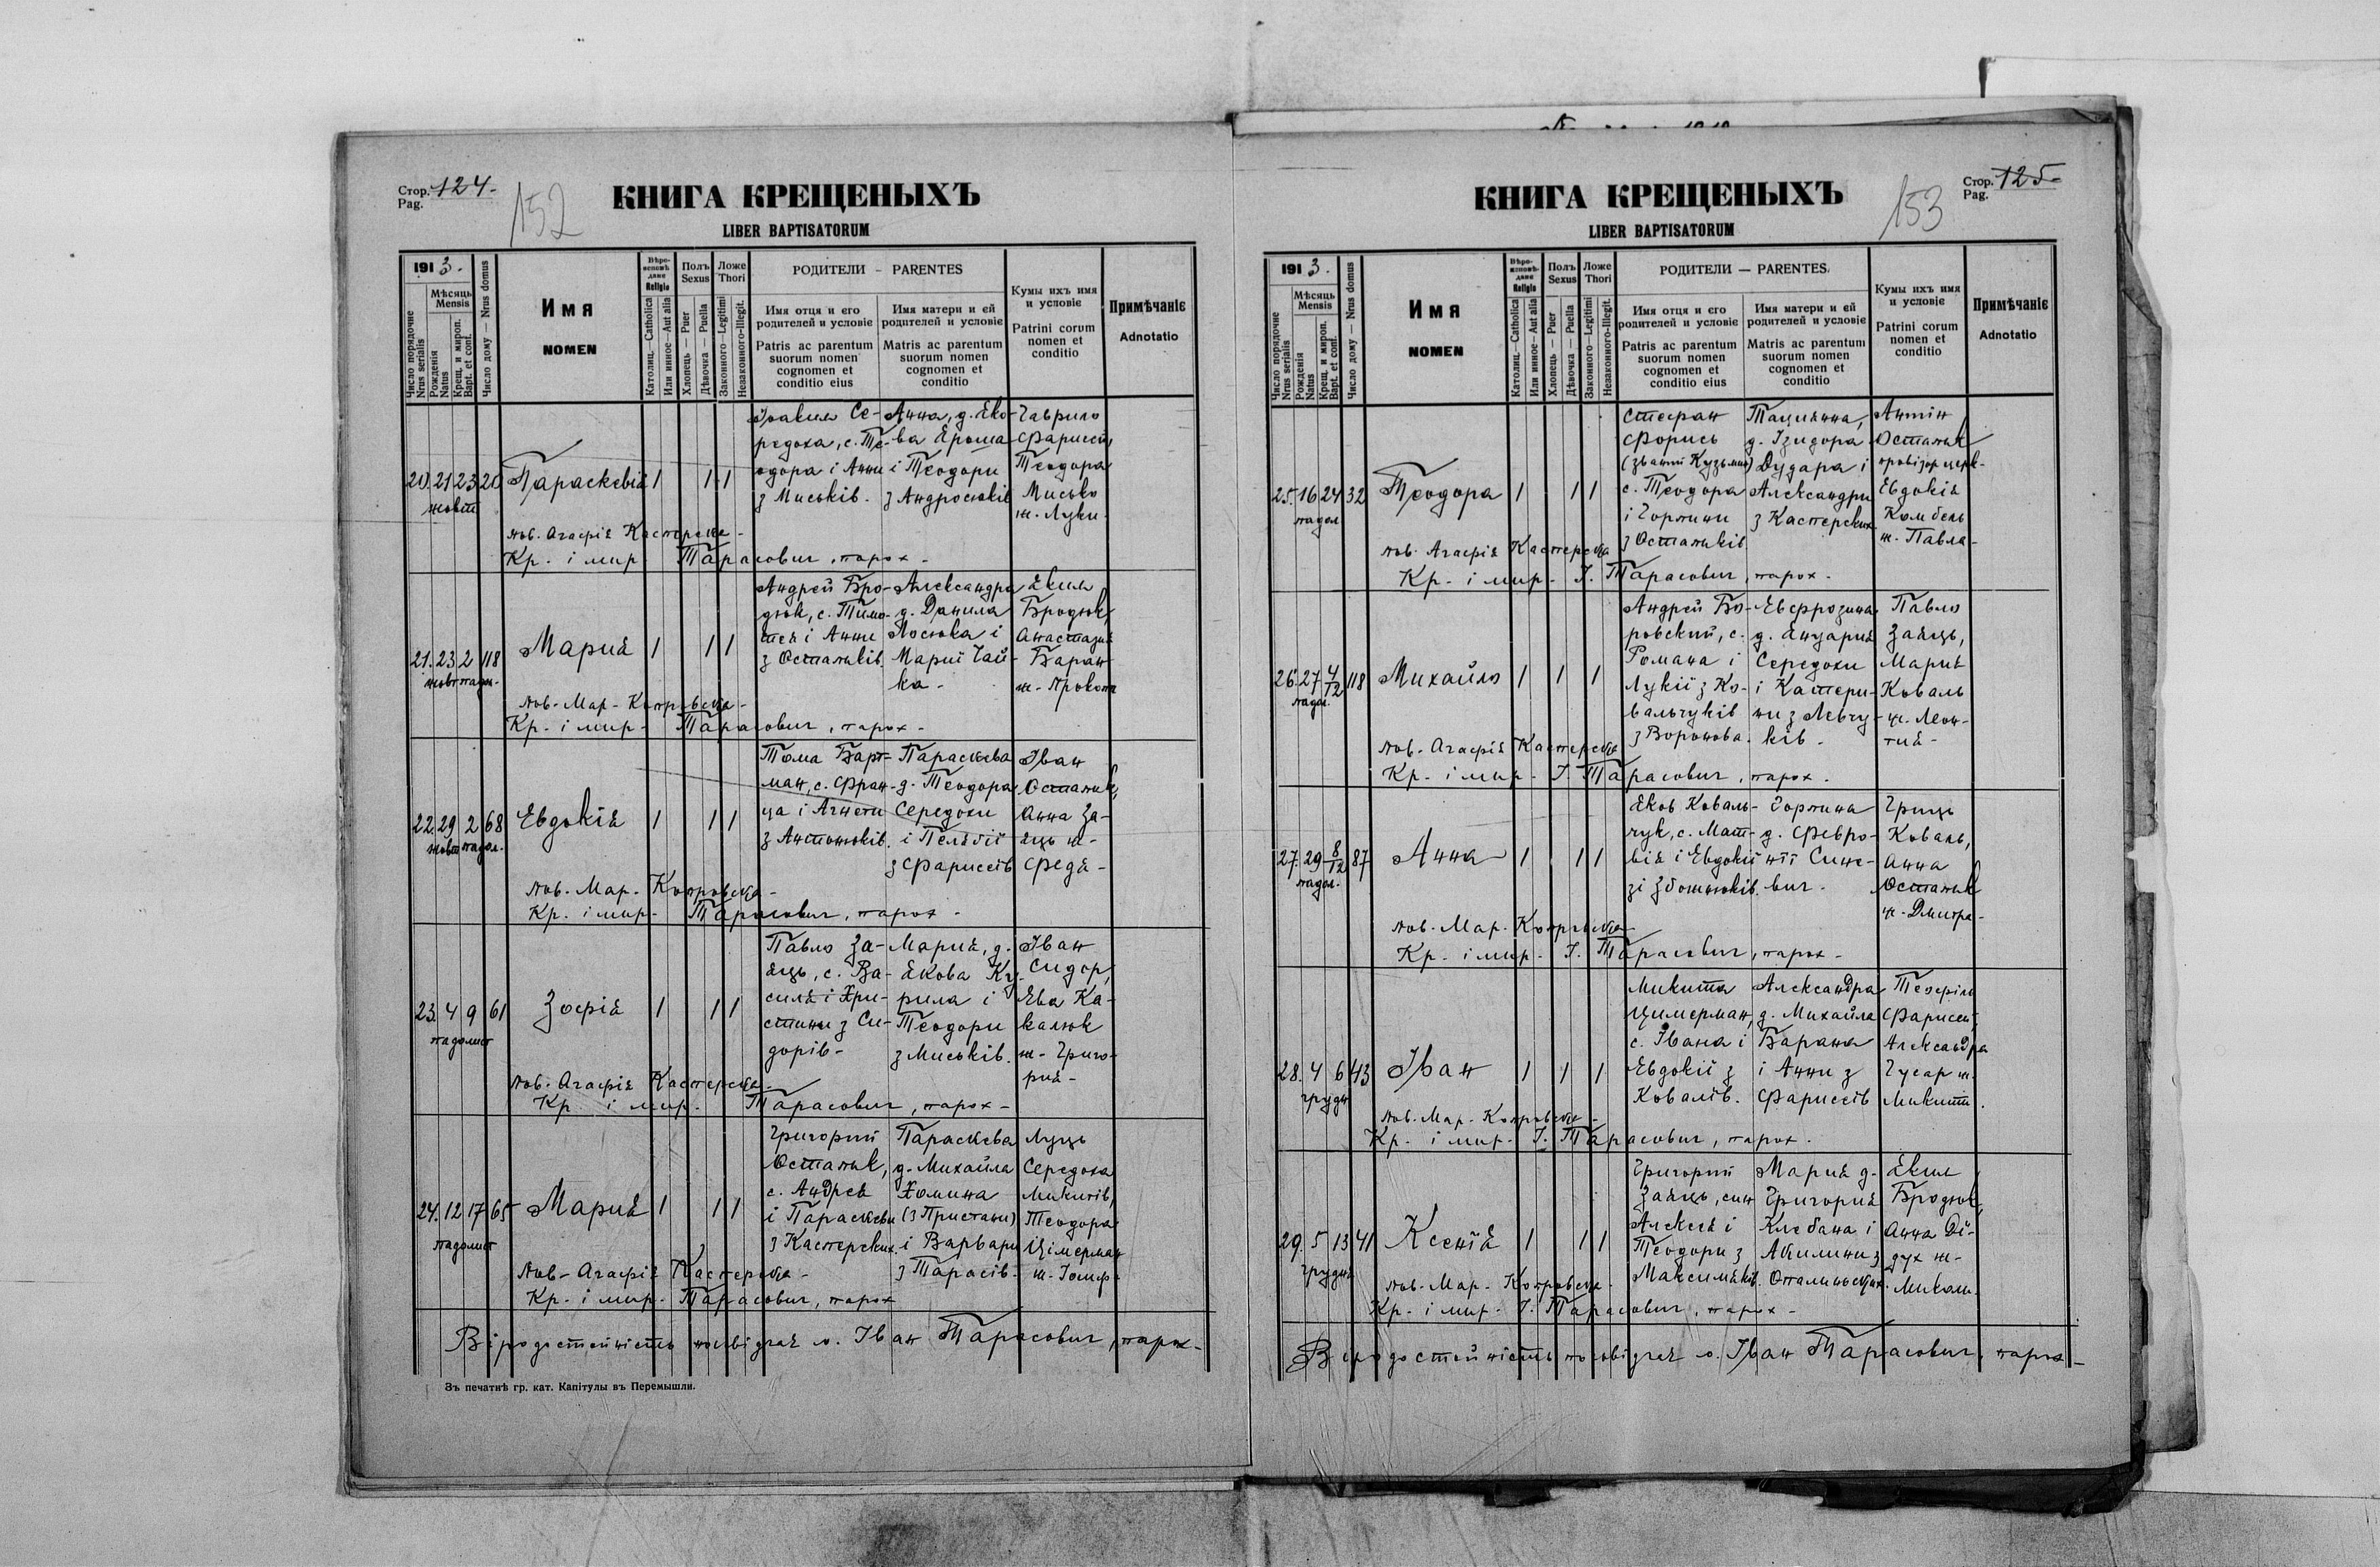 Стор. 124.
Pag.
152
КНИГА КРЕЩЕНЫХЪ
LIBER BAPTISATORUM
1913.
Мѣсяць
Mensis
Число порядочне
Nrus serialis
Рожденія
Natus
Крещ. и мироп.
Bapt. et conf.
Число дому — Nrus domus
Имя
NOMEN
Вѣроисповѣдане
Religio
Католиц.—Catholica
Или инное—Aut alia
Полъ
Sexus
Хлопець — Puer
Дѣвочка — Puella
Ложе
Thori
Законного—Legitimi
Незаконного—Illegit.
РОДИТЕЛИ - PARENTES
Имя отця и его
родителей и условіе
Patris ac parentum
suorum nomen
cognomen et
conditio eius
Имя матери и ей
родителей и условіе
Matris ac parentum
suorum nomen
cognomen et
conditio
Кумы ихъ имя
и условіе
Patrini corum
nomen et
conditio
Примѣчаніє
Adnotatio
20. 21 23 20 Параскевія 1 1 1
жовт
Іоаким Се-
редоха, с. Те-
одора і Анни
з Миськів.
Анна, д. Яко-
ва Ярома
і Теодори
з Андросюків
Гаврило
Фарисей,
Теодора
Мисько
ж. Луки.
пов. Агафія Касперска -
Кр. і мир. Тарасович, парох -
21. 23 2 118 Мария 1 1 1
жовт падол.
Андрей Бро-
дюк, с. Тимо-
тея і Анни
з Остапьків.
Александра
д. Данила
Лосюка і
Марії Гай-
ка -
Яким
Бродюк,
Анастазия
Баран
ж. Прокопа
пов. Мар. Копровска -
Кр. і мир - Тарасович, парох -
22. 29 2 68 Евдокія 1 1 1
жовт падол.
Тома Барт-
ман, с. Фран-
ца і Агнети
з Антонюків.
Параскева
д. Теодора
Середохи
і Пелагії
з Фарисеїв
Іван
Остапьк,
Анна За-
яць ж-
Федя -
пов. Мар. Копровска -
Кр. і мир - Тарасович, парох -
23. 4 9 61 Зофія 1 1 1
падолист
Павло За-
яць, с. Ва-
силя і Хри-
стини з Си-
дорів -
Мария, д.
Якова Ку-
рила і
Теодори
з Миськів.
Іван
Сидор,
Ева Ка-
калюк
ж. Григо-
рия -
пов. Агафія Касперска -
Кр. і мир. Тарасович, парох -
24. 12 17 65 Мария 1 1 1
падолист
Григорий
Остапьк,
с. Андрея
і Параскеви
з Касперских.
Параскева
д. Михайла
Хомина
(з Пристани)
і Варвари
з Тарасів.
Луць
Середоха
Микитів,
Теодора
Цімерман
ж. Йосиф.
пов - Агафія Касперска -
Кр. і мир. Тарасович, парох
Віродостойність посвідчає о. Іван Тарасович, парох -
Зъ печатнѣ гр. кат. Капітулы въ Перемышли.
Стор. 125-
Pag.
153
КНИГА КРЕЩЕНЫХЪ
LIBER BAPTISATORUM
1913.
Мѣсяць
Mensis
Число порядочне
Nrus serialis
Рожденія
Natus
Крещ. и мироп.
Bapt. et conf.
Число дому — Nrus domus
Имя
NOMEN
Вѣроисповѣдане
Religio
Католиц.—Catholica
Или инное—Aut alia
Полъ
Sexus
Хлопець — Puer
Дѣвочка — Puella
Ложе
Thori
Законного—Legitimi
Незаконного—Illegit.
РОДИТЕЛИ — PARENTES.
Имя отця и его
родителей и условіе
Patris ac parentum
suorum nomen
cognomen et
conditio eius
Имя матери и ей
родителей и условіе
Matris ac parentum
suorum nomen
cognomen et
conditio
Кумы ихъ имя
и условіе
Patrini corum
nomen et
conditio
Примѣчаніє
Adnotatio
25. 16 24 32 Теодора 1 1 1
падол
Стефан
Форись
(званий Кузьмин)
с. Теодора
і Горпини
з Остапьків
Тациянна,
д. Ізидора
Дудара і
Александри
з Касперских
Антін
Остапьк
провізор церк-
Евдокія
Комбель
ж. Павла -
пов. Агафія Касперска
Кр. і мир. І. Тарасович, парох -
26. 27 4/12 118 Михайло 1 1 1
падол.
Андрей Бо-
ровский, с.
Романа і
Лукії з Ко-
вальчуків
з Воронова.
Евфрозина
д. Януария
Середохи
і Катери-
ни з Левчу-
ків -
Павло
Заяць,
Мария
Коваль
ж. Леон-
тия -
пов. Агафія Касперска
Кр. і мир. І. Тарасович, парох.
27. 29 8/12 87 Анна 1 1 1
падол.
Яков Коваль-
чук, с. Мат-
вія і Евдокії
зі Збожнюків.
Горпина
д. Февро-
нії Сине-
вич.
Гриць
Коваль,
Анна
Остапьк
ж. Дмитра -
пов. Мар. Копровска -
Кр. і мир - І. Тарасович, парох -
28. 4 6 43 Іван 1 1 1
грудн
Микита
Цимерман,
с. Івана і
Евдокії з
Ковалів.
Александра
д. Михайла
Барана
і Анни з
Фарисеїв
Теофіль
Фарисей,
Александра
Гусар ж.
Микити.
пов. Мар. Копровска -
Кр. і мир - І. Тарасович, парох.
29. 5 13 41 Ксенїя 1 1 1
грудня
Григорий
Заяць, син
Алексея і
Теодори з
Максимяків.
Мария д.
Григория
Клебана і
Акилини з
Опалиньских.
Яким
Бродюк,
Анна Ді-
дух ж -
Миколи.
пов. Мар. Копровска.
Кр. і мир - І. Тарасович, парох -
Віродостойність посвідчає о. Іван Тарасович, парох -